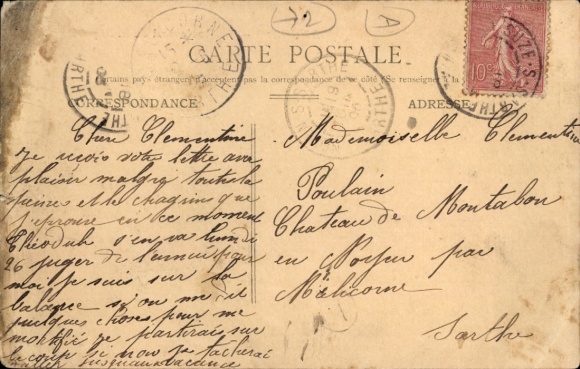 72
A
CARTE POSTALE
Certains pays étrangers n'acceptent pas la correspondance de ce côté (Se renseigner à la
CORRESPONDANCE
ADRESSE
SUZE-S
SARTHE
10c
Chere Clementine
Je recois votre lettre avec
plaisir malgre toute la
peine et le chagrin que
j'eprouve en ce moment
s'en va lundi
26 juger de l'ennui pour
moi je suis sur la
balance si on me dit
quelques choses pour me
je partirais sur
le coup si non je tacherai
vacance
Mademoiselle Clementine
Poulain
Chateau de Montabon
en Noyen par
Malicorne
Sarthe